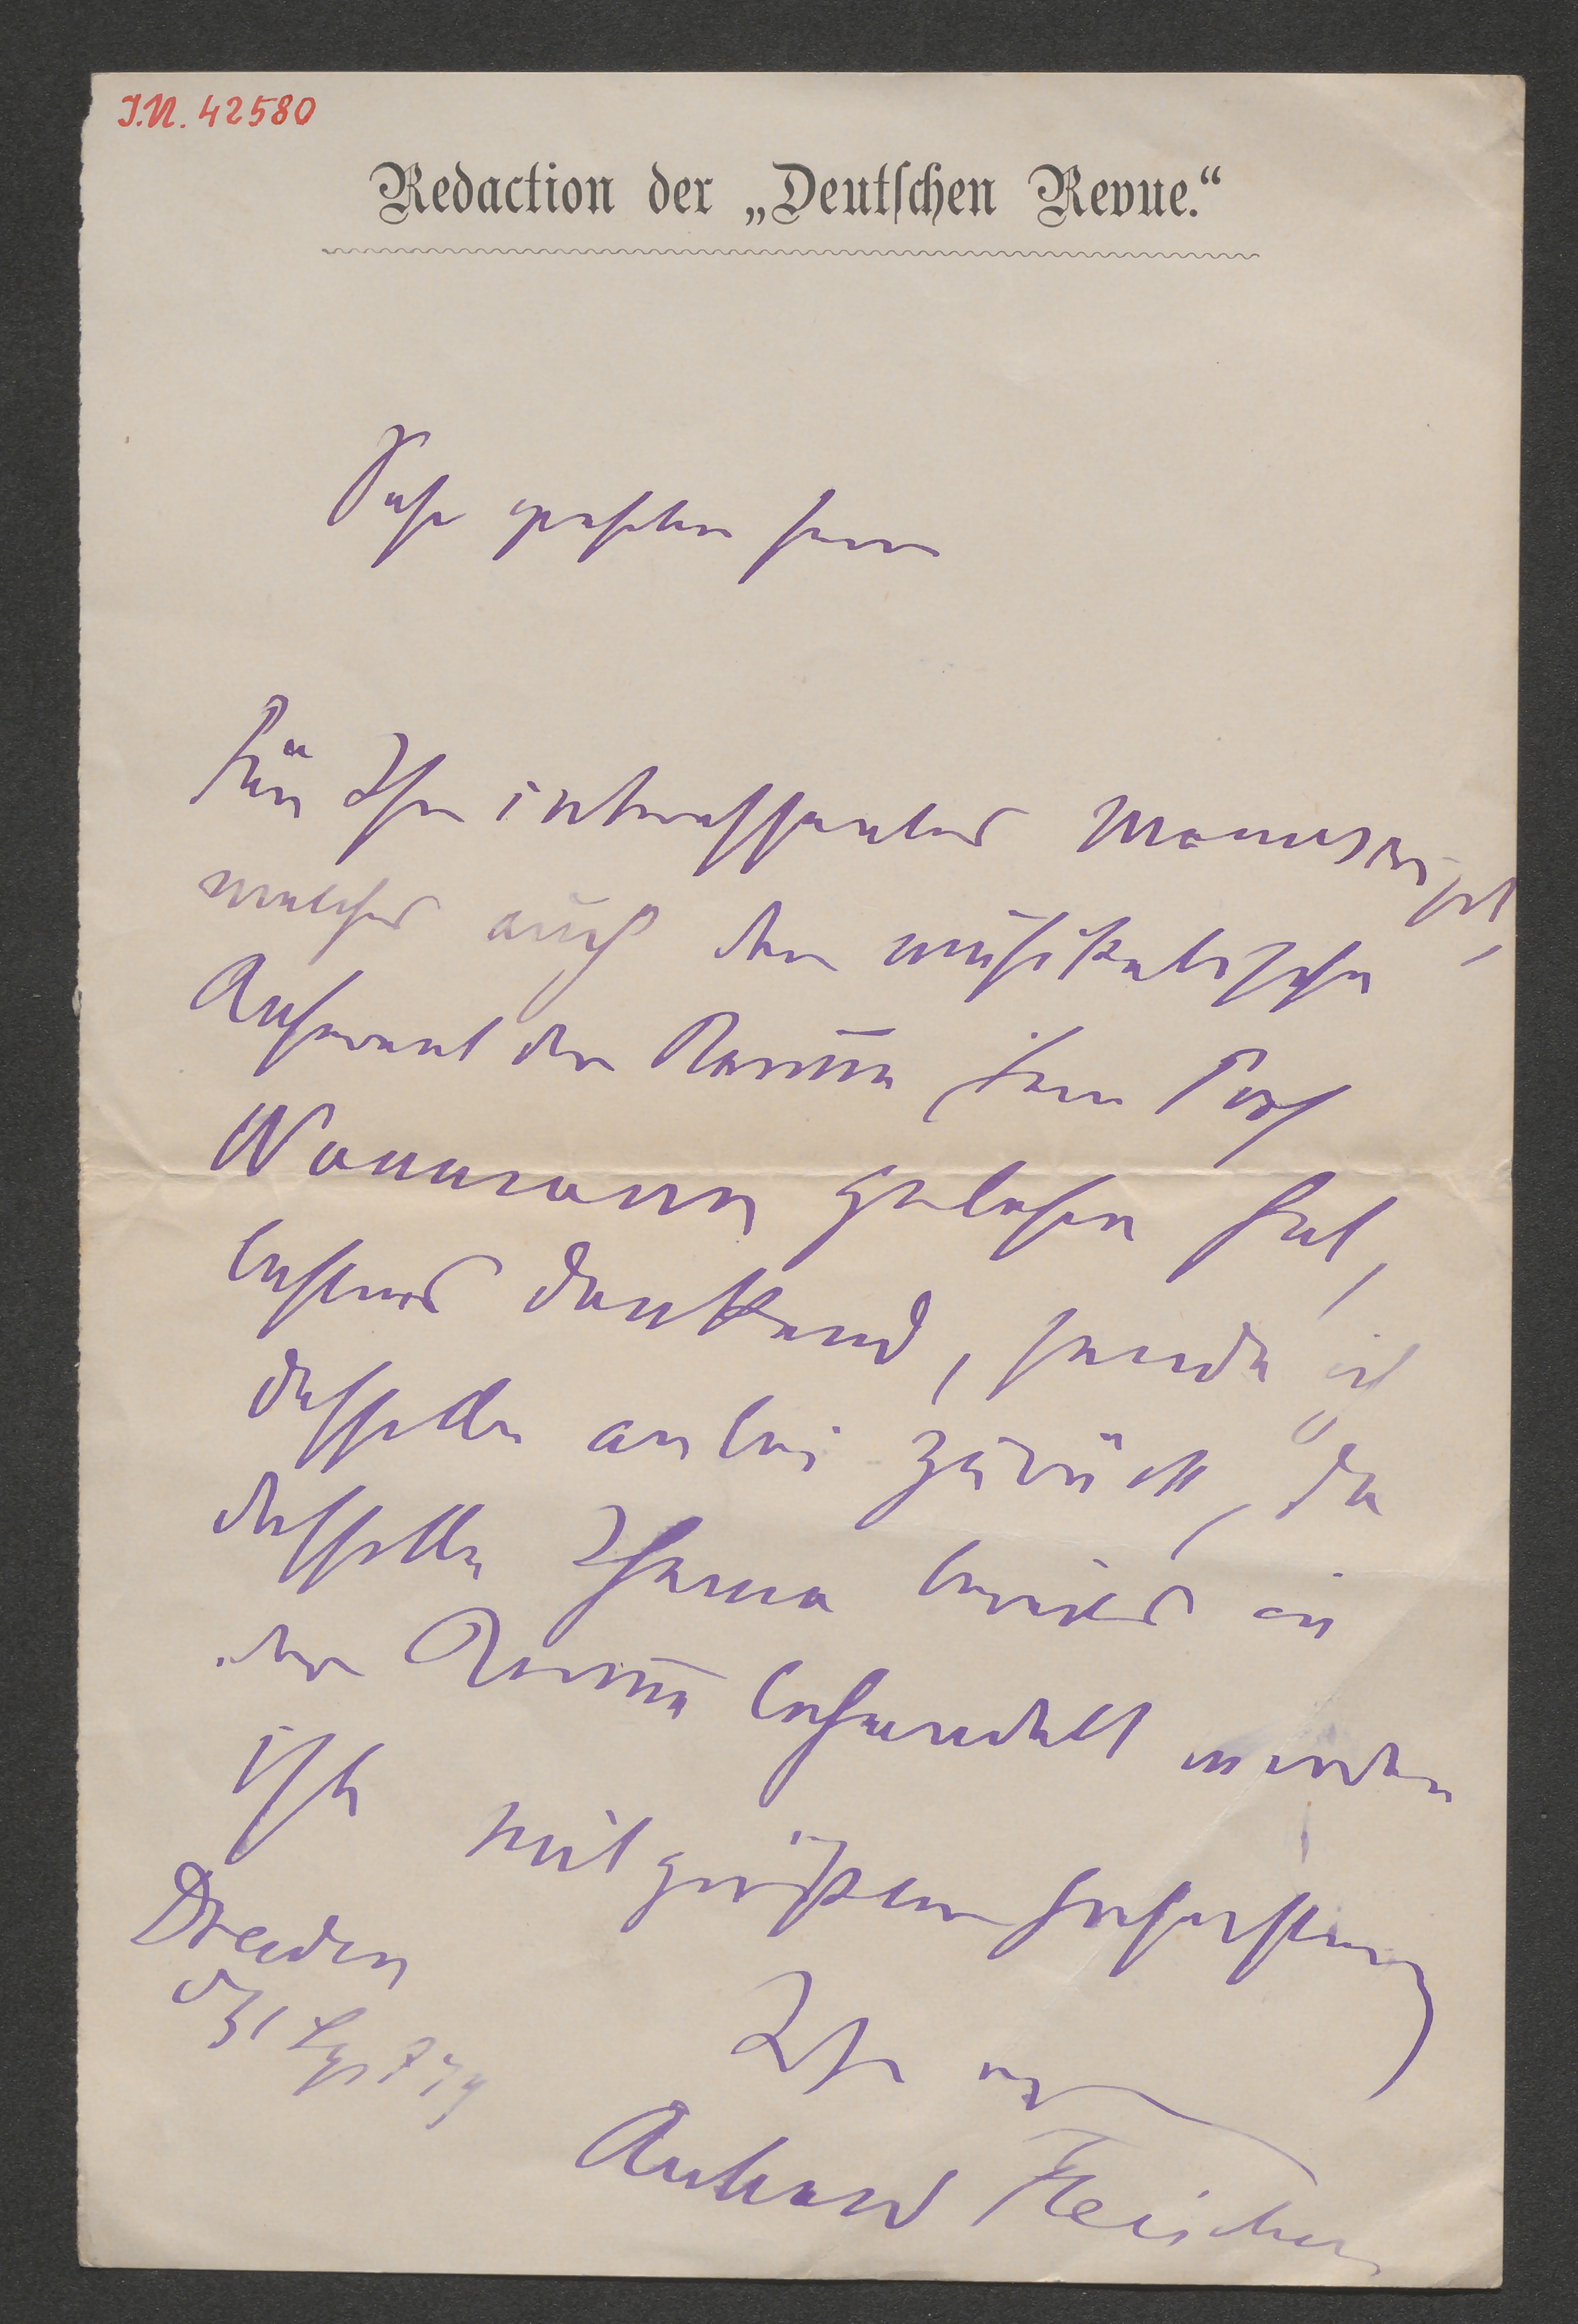 I.N. 42580
Redaction der „Deutschen Revue.“
Sehr geehrter Herr
Für Ihr interessantes Manuscript,
welches auch der musikalische
Referent der Revue, Herr Prof
Naumann gelesen hat,
bestens dankend, sende ich
dasselbe anbei zurück, da
dasselbe Thema bereits in
der Revue behandelt worden
ist.
mit größter Hochachtung
Dresden
Ihr
Richard Fleischer